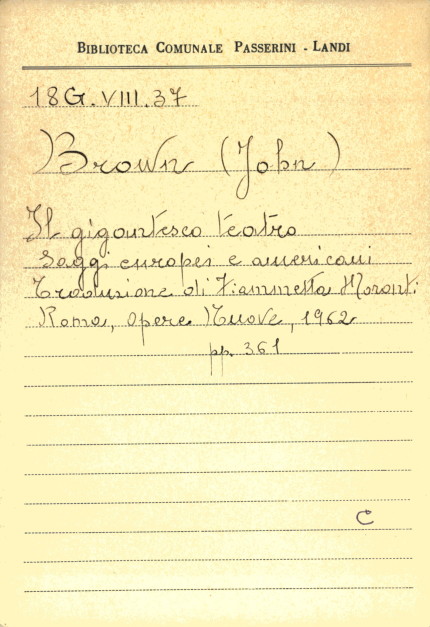 BIBLIOTECA COMUNALE PASSERINI - LANDI
18G.VIII.37
Brown (John)
Il gigantesco teatro
Saggi europei e americani
Traduzione di Fiammetta Moronti
Roma, Opere Nuove, 1962
pp. 361
C